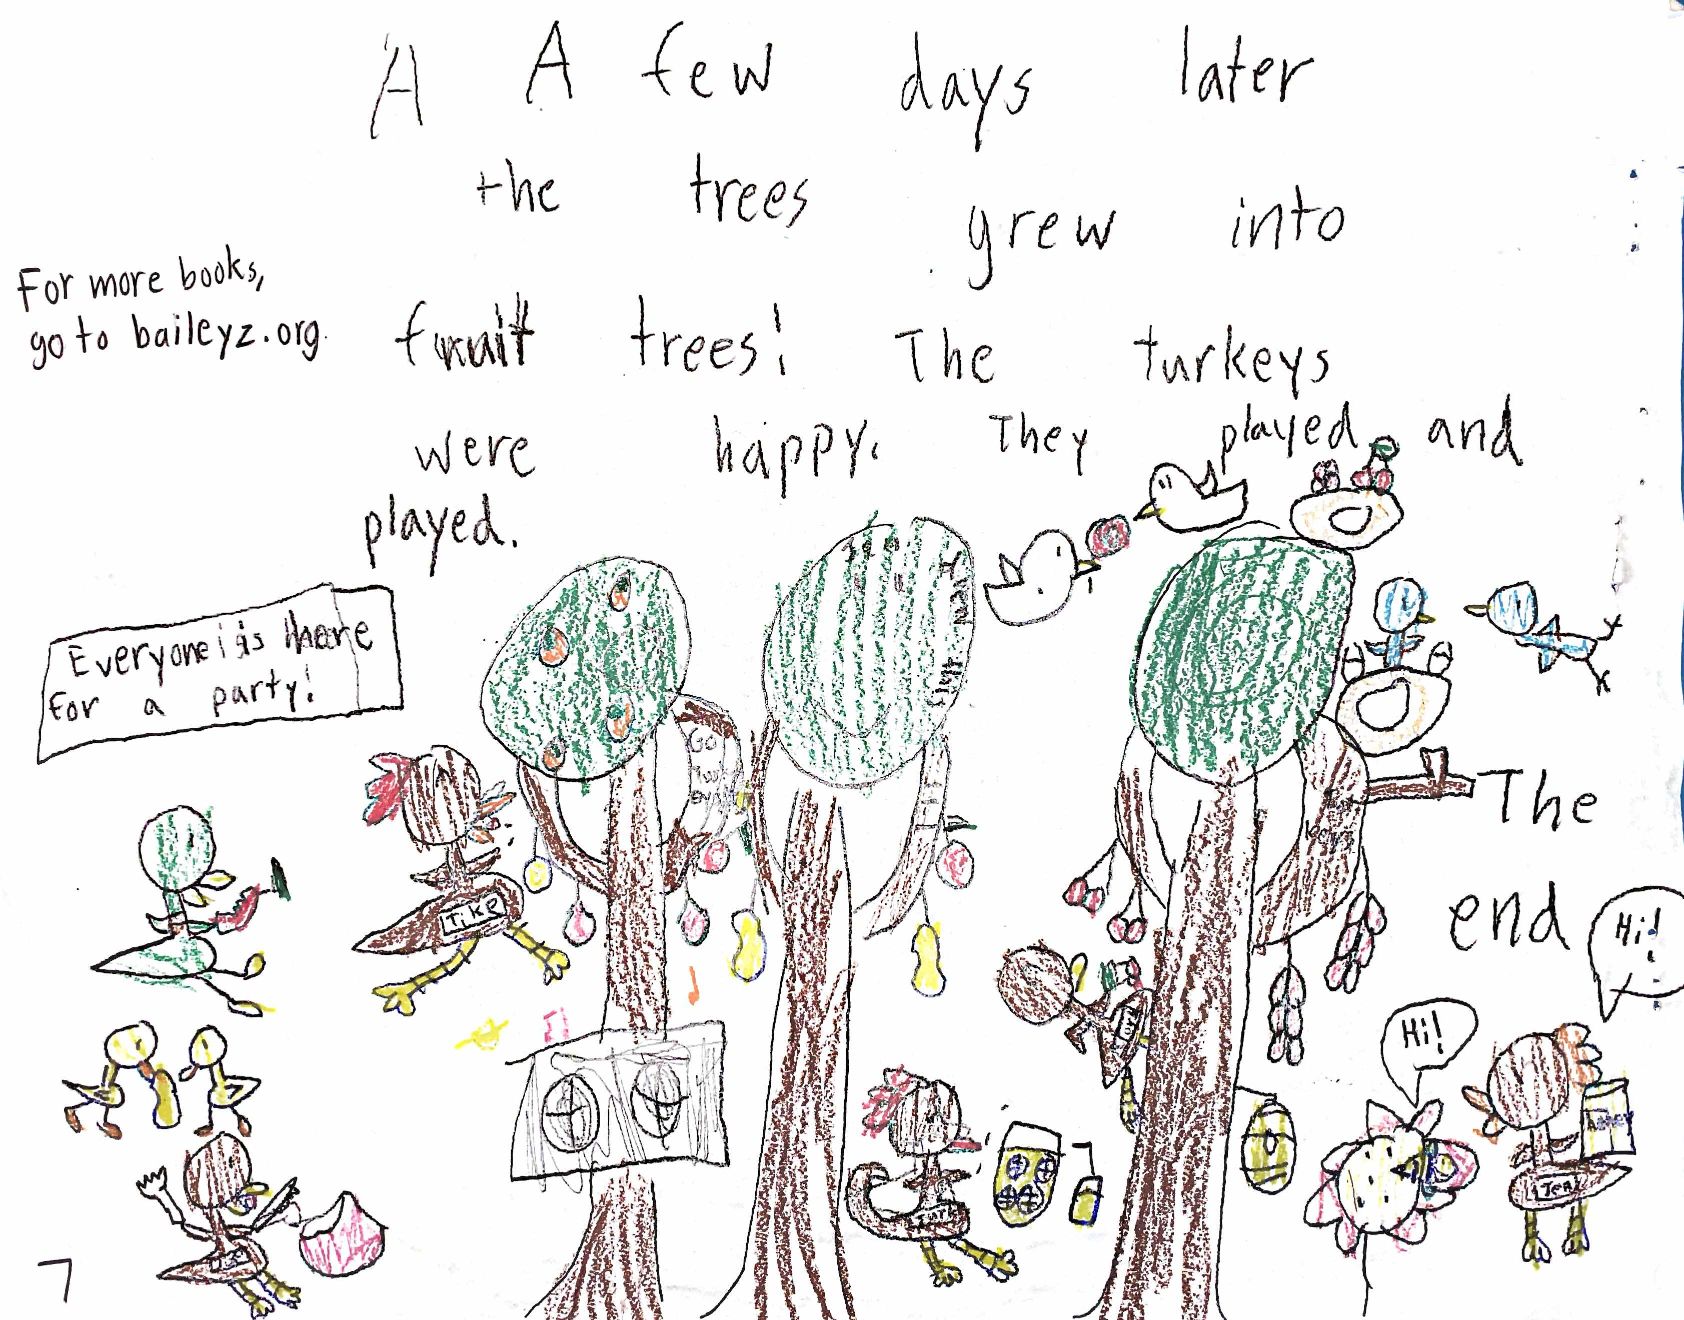 A A few days later
the trees grew into
fruit trees! The turkeys
were happy. They played and
played.
For more books,
go to baileyz.org.
Everyone is here
for a party!
The
end
Hi!
Hi!
TIKE
7